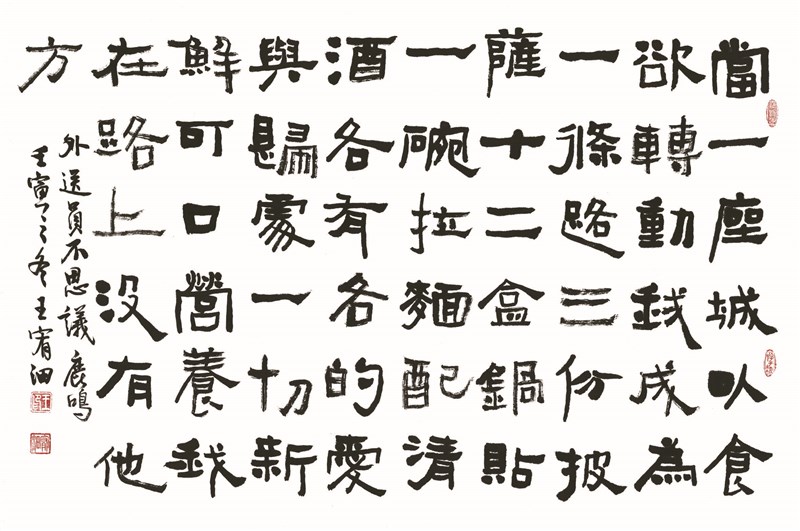 當一座城以食
欲轉動我成為
一條路三份披
薩十二盒鍋貼
一碗拉麵配清
酒各有各的愛
與歸處一切新
鮮可口營養我
在路上沒有他
方
外送員不思議 鹿鳴
壬寅之冬王宥